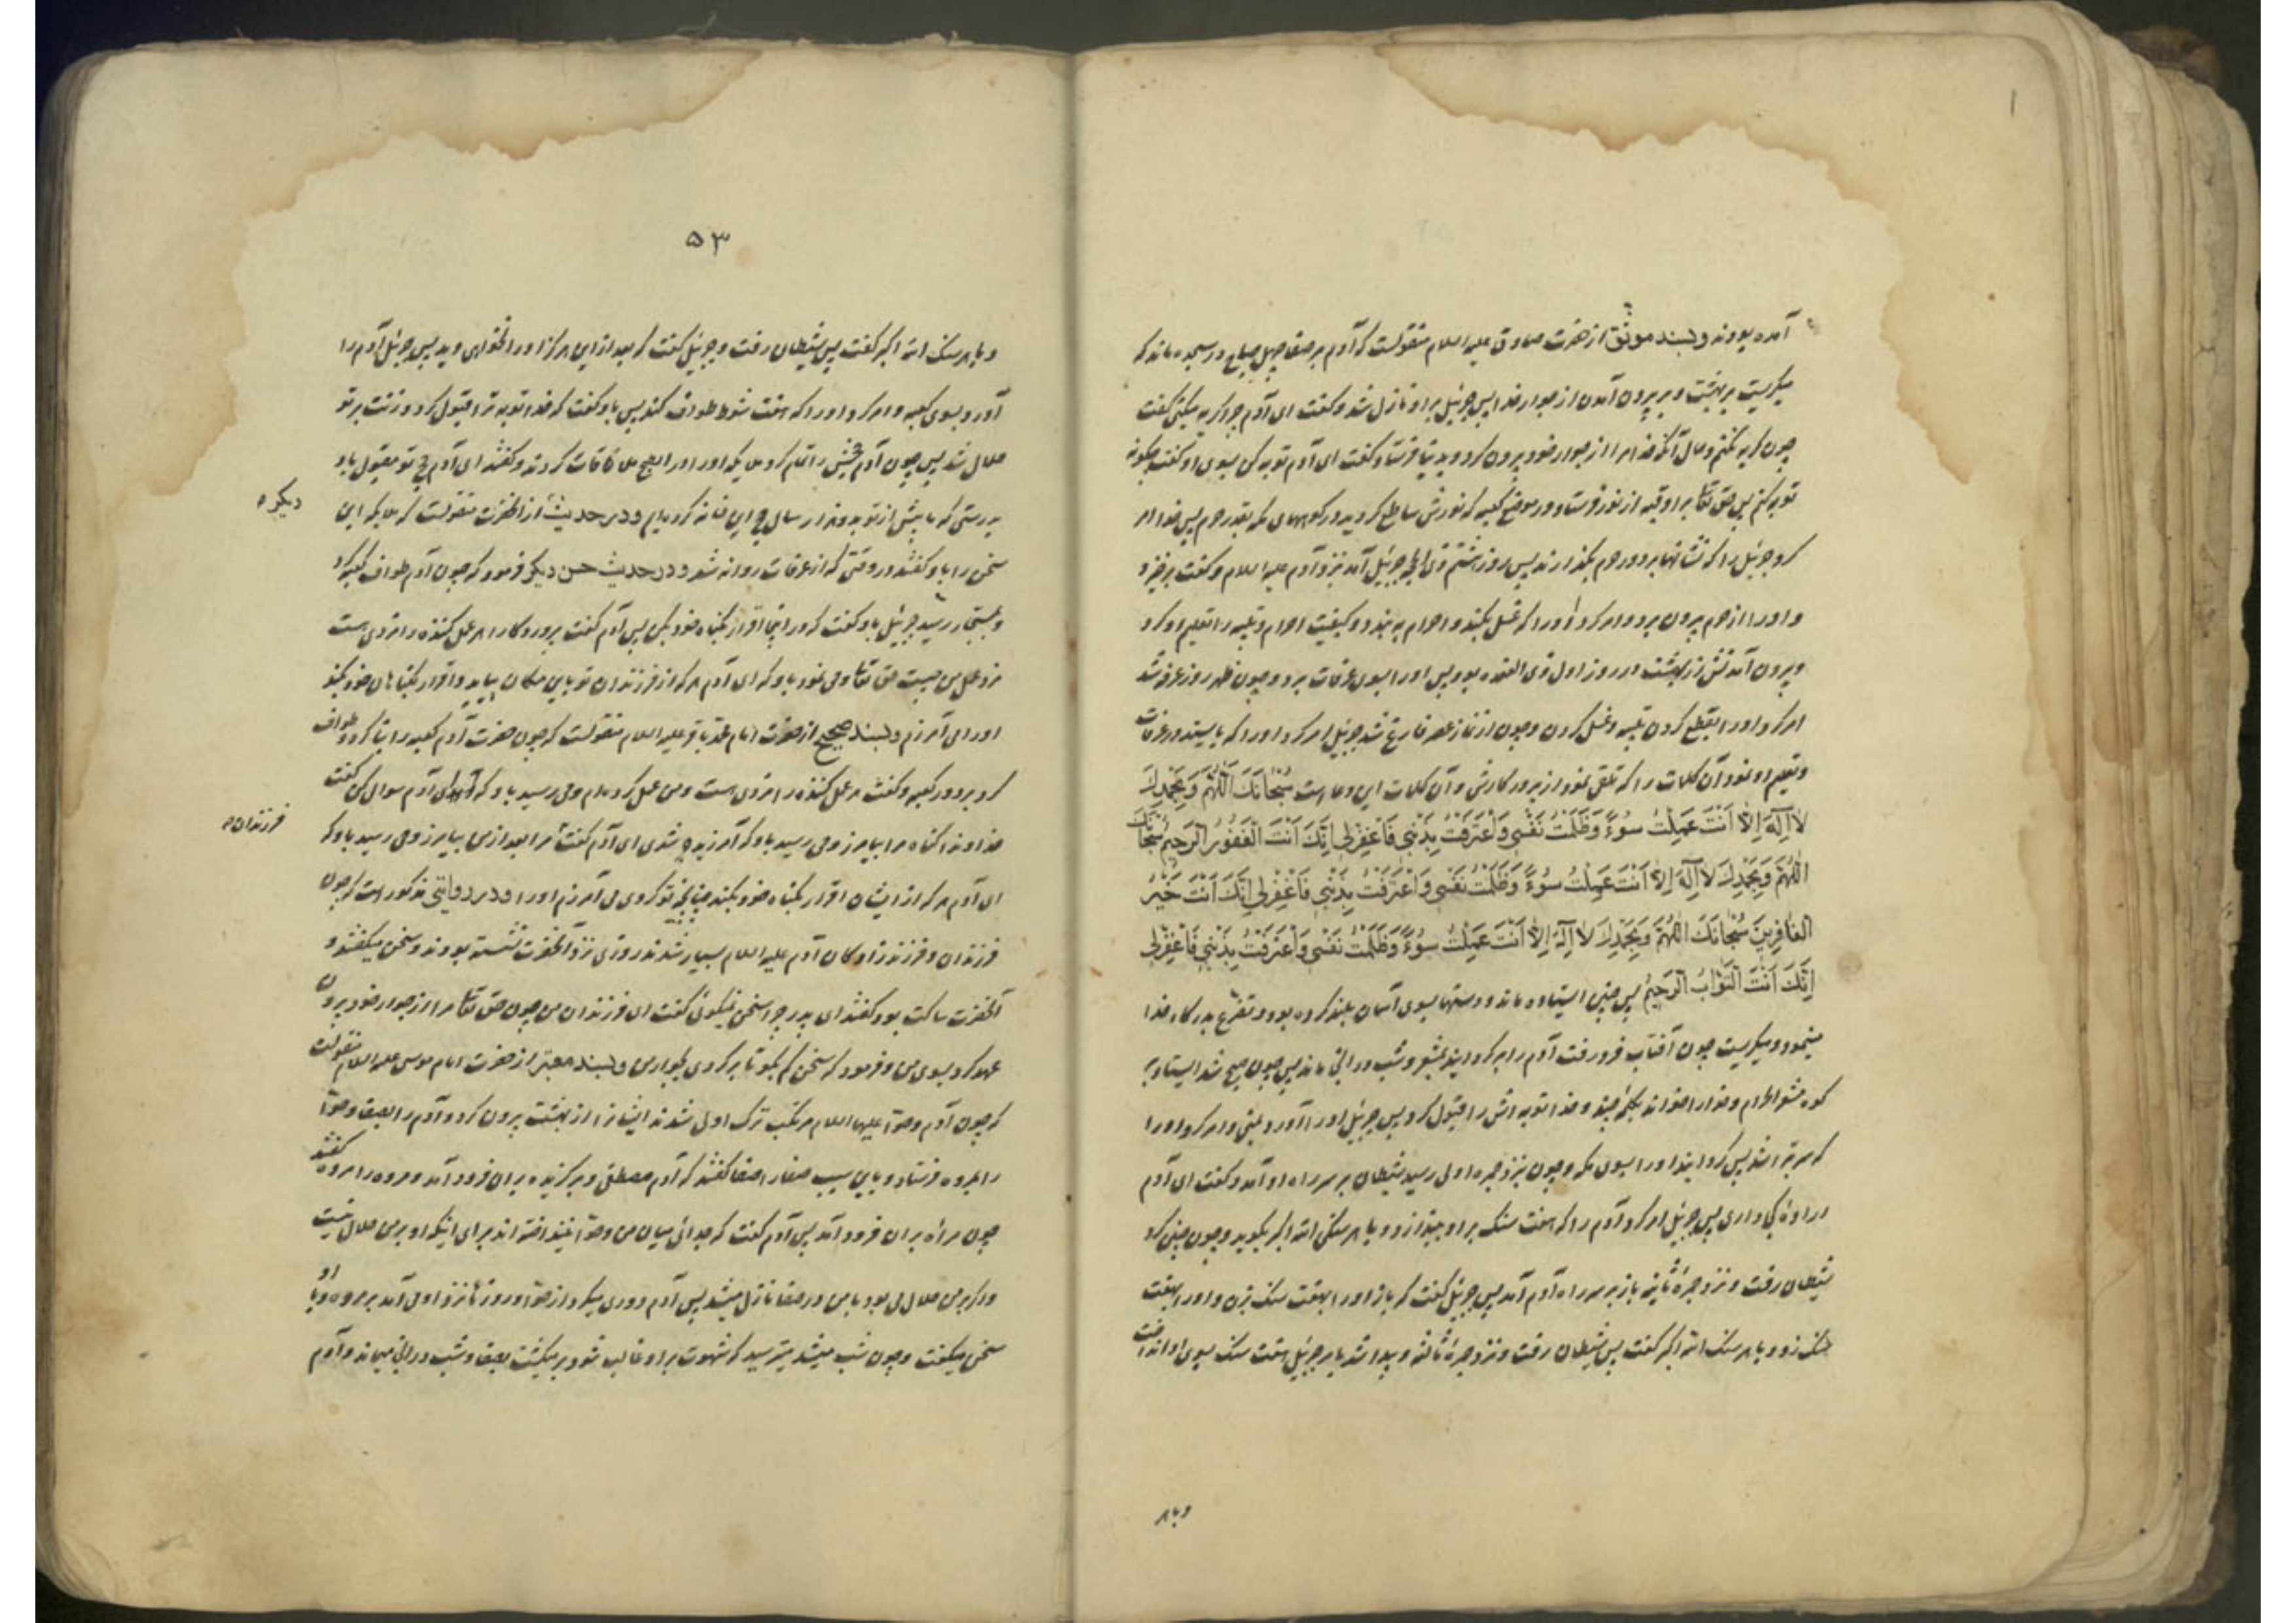 آمده بودند و بسند موثق از حضرت صادق علیه السلام منقولست که آدم بر صفا چهل صباح در سجده ماند که
میگریست بر بهشت و بر بیرون آمدن از جوار خدا پس جبرئیل بر او نازل شد و گفت ای آدم چرا گریه میکنی گفت
چون گریه نکنم و حال آنکه خدا مرا از جوار خود بیرون کرد و بدنیا فرستاد گفت ای آدم توبه کن بسوی او گفت چگونه
توبه کنم پس حق تعالی بر او قبه از نور فرستاد در موضع کعبه که نورش ساطع گردید در کوههای مکه بقدر حرم پس خدا امر
کرد جبرئیل را که نشانها بر دور حرم بگذارند پس روز هشتم ذی الحجه جبرئیل آمد نزد آدم علیه السلام و گفت برخیز و
و او را از حرم بیرون برد و امر کرد او را که غسل بکند و احرام به بندد و کیفیت احرام و تلبیه را تعلیم او کرد
و بیرون آمدنش از بهشت در روز اول ذی القعده بود پس او را بسوی عرفات برد و چون ظهر روز عرفه شد
امر کرد او را بقطع کردن تلبیه و غسل کردن و چون از نماز عصر فارغ شد جبرئیل امر کرد او را که بایستد در عرفات
و تعلیم او نمود آن کلمات را که تلقی نمود از پروردگارش و آن کلمات این دعاست سُبْحَانَكَ اللّٰهُمَّ وَبِحَمْدِكَ
لَا اِلٰهَ اِلَّا اَنْتَ عَمِلْتُ سُوءً وَظَلَمْتُ نَفْسِی وَاعْتَرَفْتُ بِذَنْبِی فَاغْفِرْلِی اِنَّكَ اَنْتَ الْغَفُورُ الرَّحِیمُ سُبْحَانَكَ
اللّٰهُمَّ وَبِحَمْدِكَ لَا اِلٰهَ اِلَّا اَنْتَ عَمِلْتُ سُوءً وَظَلَمْتُ نَفْسِی وَاعْتَرَفْتُ بِذَنْبِی فَاغْفِرْلِی اِنَّكَ اَنْتَ خَیْرُ
الْغَافِرِینَ سُبْحَانَكَ اللّٰهُمَّ وَبِحَمْدِكَ لَا اِلٰهَ اِلَّا اَنْتَ عَمِلْتُ سُوءً وَظَلَمْتُ نَفْسِی وَاعْتَرَفْتُ بِذَنْبِی فَاغْفِرْلِی
اِنَّكَ اَنْتَ التَّوَّابُ الرَّحِیمُ پس چنین ایستاده ماند و دستها بسوی آسمان بلند کرده بود و تضرع بدرگاه خدا
مینمود و میگریست چون آفتاب فرو رفت آدم را برگردانید بمشعر و شب در آنجا ماند پس چون صبح شد ایستاد بر
کوه مشعر الحرام و خدا را خواند بکلمه چند و خدا توبه اش را قبول کرد پس جبرئیل او را آورد بمنی و امر کرد او را
که سر بتراشد پس گردانید او را بسوی مکه و چون نزد جمره اولی رسید شیطان بر سر راه او آمد و گفت ای آدم
اراده کجا داری پس جبرئیل امر کرد آدم را که هفت سنگ بر او بیندازد و با هر سنگی الله اکبر بگوید و چون چنین کرد
شیطان رفت و نزد جمره ثانیه باز بر سر راه آدم آمد پس جبرئیل گفت که باز او را بهفت سنگ بزن و او را بهفت
سنگ زد و با هر سنگ الله اکبر گفت پس شیطان رفت و نزد جمره ثالثه پیدا شد بامر جبرئیل هفت سنگ بسوی او انداخت
و با هر
۵۳
و با هر سنگ الله اکبر گفت پس شیطان رفت و جبرئیل گفت که بعد از این هرگز او را نخواهی دید پس جبرئیل آدم را
آورد بسوی کعبه و امر کرد او را که هفت شوط طواف کند پس باو گفت که خدا توبه ترا قبول کرد و زنت بر تو
حلال شد پس چون آدم حجش را تمام کرد ملایکه او را در ابطح ملاقات کردند و گفتند ای آدم حج تو مقبول باد
بدرستی که ما پیش از تو بدو هزار سال حج این خانه کرده ایم و در حدیث از آنحضرت منقولست که ملایکه این
دیگر
سخن را باو گفتند در وقتی که از عرفات روانه شد و در حدیث حسن دیگر فرمود که چون آدم طواف کعبه کرد
و بمستجار رسید جبرئیل باو گفت که در اینجا اقرار بگناه خود بکن پس آدم گفت پروردگارا هر عمل کننده را مزدی هست
مزد عمل من چیست حق تعالی وحی نمود باو که ای آدم هر که از فرزندان تو باین مکان بیاید و اقرار بگناهان خود بکند
او را می آمرزم و بسند صحیح از حضرت امام محمد باقر علیه السلام منقولست که چون حضرت آدم کعبه را بنا کرد و طواف
کرد بر دور کعبه و گفت هر عمل کننده را مزدی هست و من عمل کرده ام وحی رسید باو که ای آدم سوال کن گفت
خداوندا گناه مرا بیامرز وحی رسید باو که آمرزیده شدی ای آدم گفت مرا بعد از من بیامرز وحی رسید باو که
فرزندان
ای آدم هر که از ایشان اقرار بگناه خود بکند چنانچه تو کردی می آمرزم او را و در روایتی مذکور است که چون
فرزندان و فرزندزادگان آدم علیه السلام بسیار شدند روزی نزد آنحضرت نشسته بودند و سخن میگفتند و
آنحضرت ساکت بود گفتند ای پدر چرا سخن نمیگوئی گفت ای فرزندان من چون حق تعالی مرا از جوار خود بیرون
عهد کرد بسوی من و فرمود که سخن کم بگو تا برگردی بجوار من و بسند معتبر از حضرت امام موسی علیه السلام منقولست
که چون آدم و حوا علیهما السلام مرتکب ترک اولی شدند ایشانرا از بهشت بیرون کرد و آدم را بصفا و حوا
را بمروه فرستاد و باین سبب صفا را صفا گفتند که آدم مصطفی و برگزیده بر آن فرود آمد و مروه را مروه گفتند
چون مراه بر آن فرود آمد پس آدم گفت که جدائی میان من و حوا نینداخته اند برای اینکه او بر من حلال نیست
و اگر بر من حلال می بود با من در صفا نازل میشد پس آدم دوری میکرد از حوا و روز نزد او می آمد بر مروه و با او
سخن میگفت و چون شب میشد میترسید که شهوت بر او غالب شود بر میگشت بصفا و شب در آنجا میماند و آدم